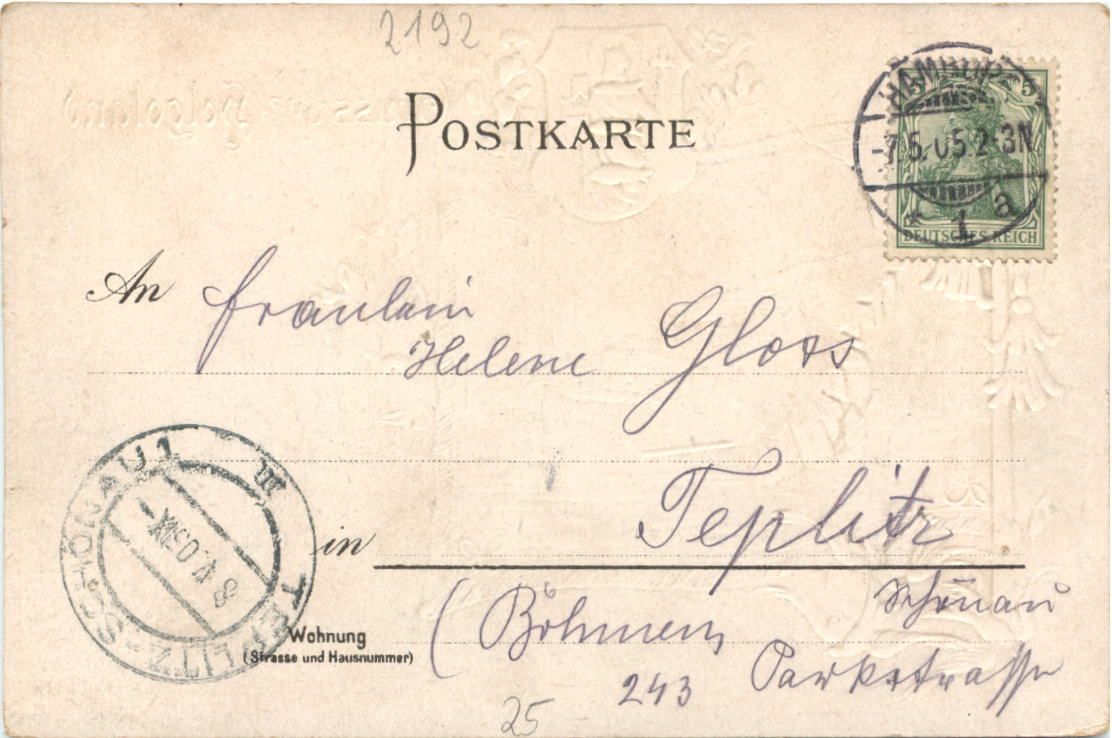 2192
POSTKARTE
HAMBURG
-7.5.05.2-3N
* 1 a
5
DEUTSCHES REICH
An Fräulein
Helene Gloss
in Teplitz
Schönau
(Böhmen)
Parkstrasse
243
Wohnung
(Strasse und Hausnummer)
TEPLITZ-SCHÖNAU 1
8 V 05
25